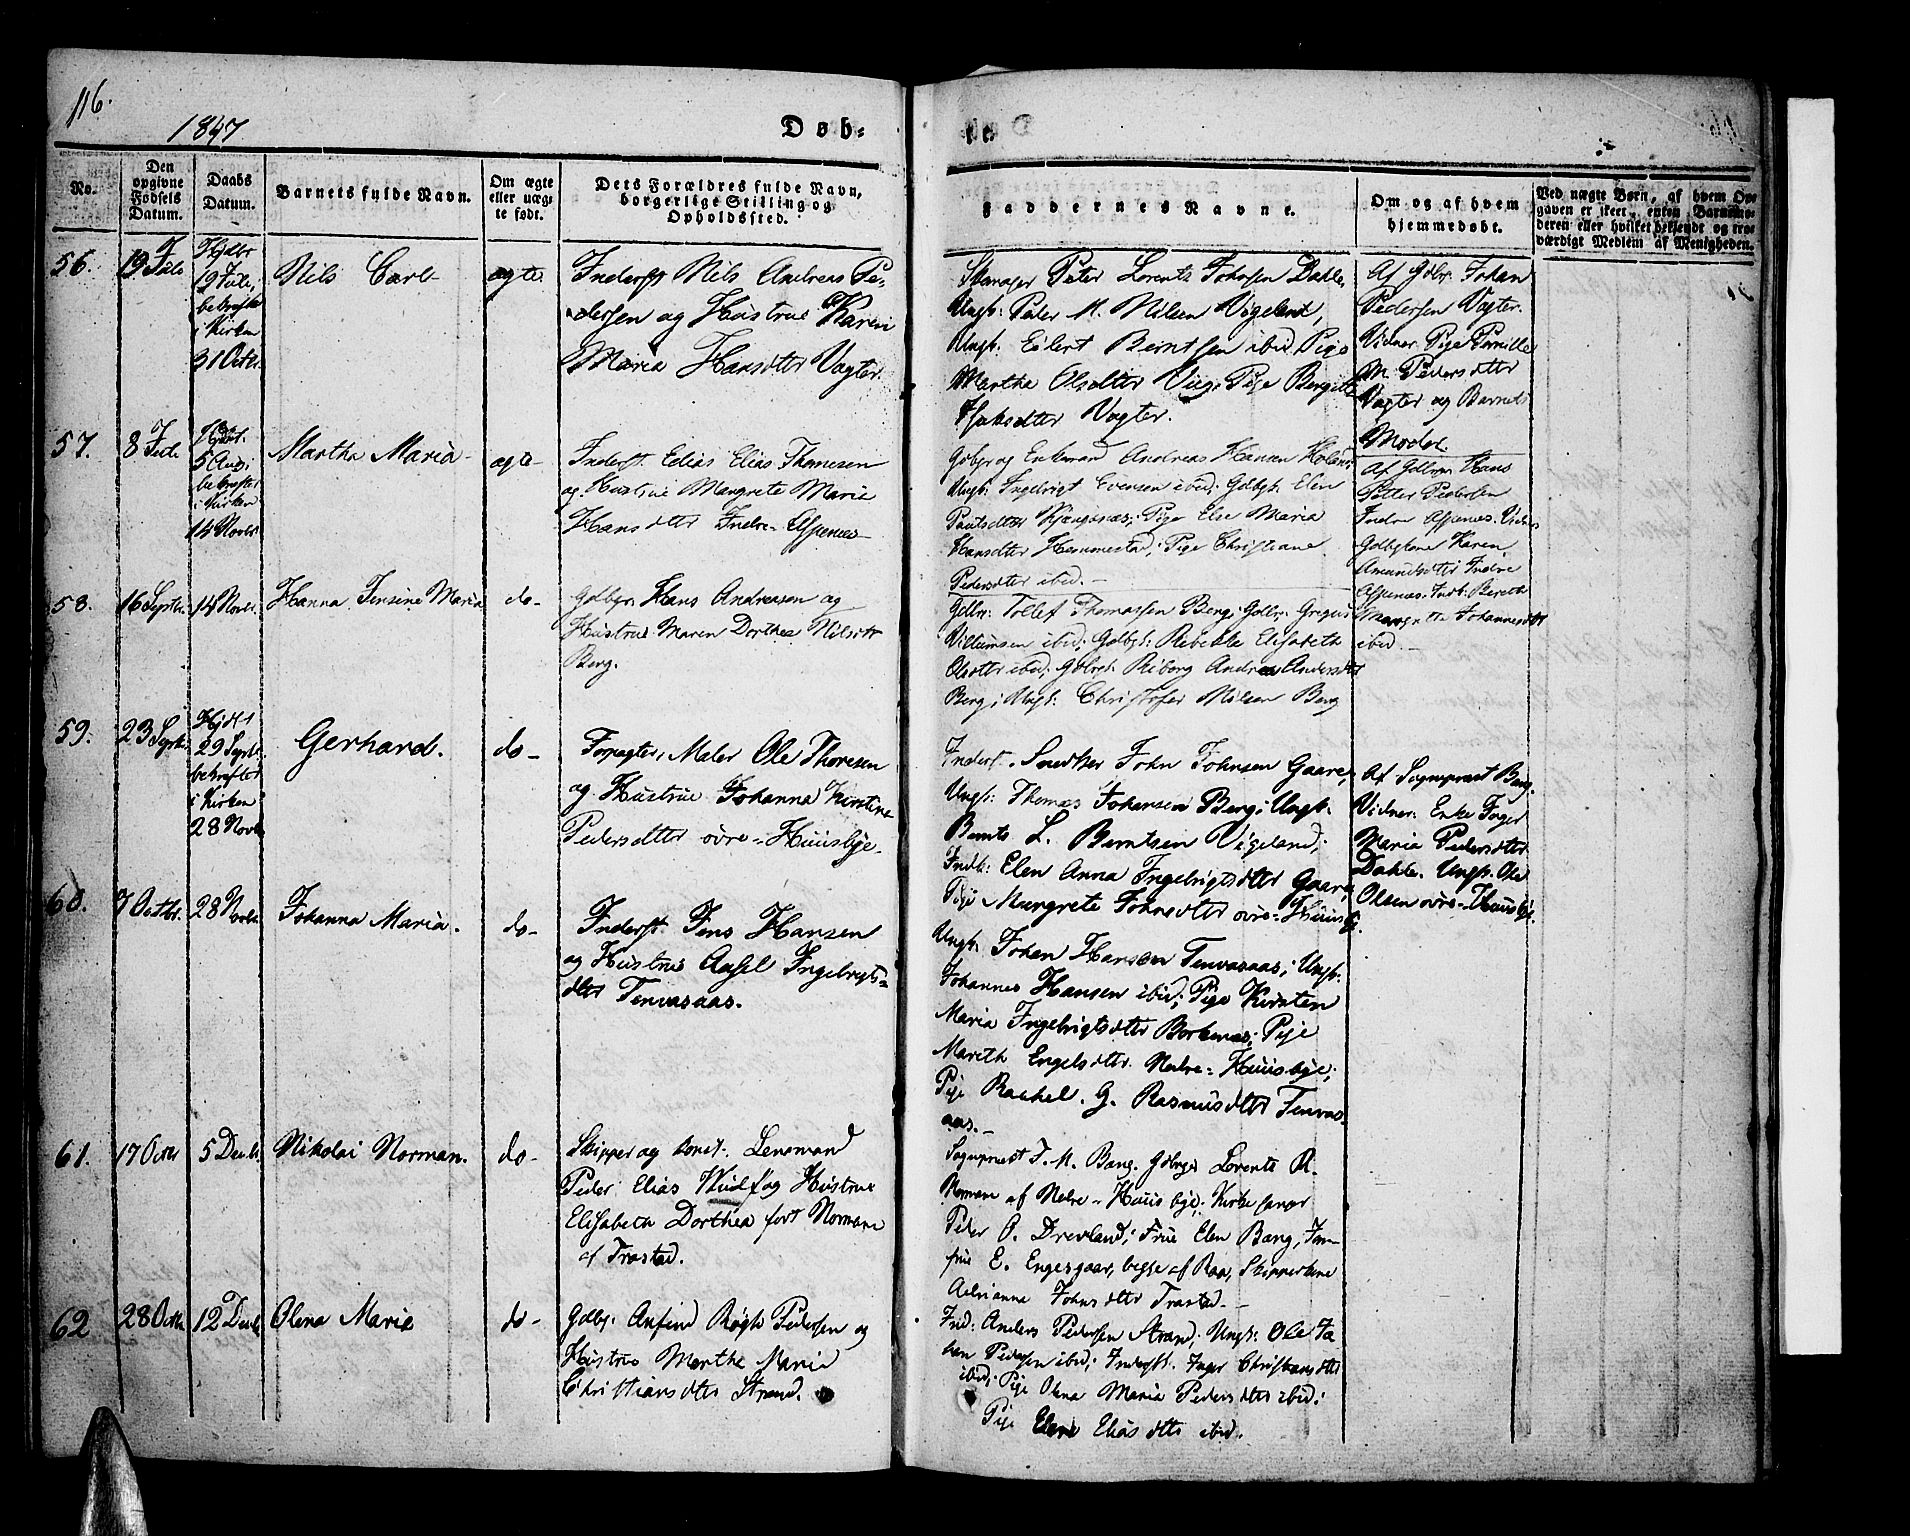 116.
1847
Døb-
No.
Den opgivne Fødsels Datum.
Daabs Datum.
Barnets fulde Navn.
Om ægte eller uægte født.
Dets Forældres fulde Navn, borgerlige Stilling og Opholdssted.
Faddernes Navne.
Om og af hvem hjemmedøbt.
Ved uægte Børn, af hvem Opgaven er skeet, enten Barnemoderen eller hvilket bekjendt og troværdigt Medlem af Menigheden.
56.
19 Juli
Hjdbt
19 Juli,
bekræftet
i Kirken
31 Octbr.
Nils Carl
ægte
Inderst Nils Andreas Pe-
dersen og Hustrue Karen
Maria Hansdtter Vagter.
Peter Lorents Johnsen Dahle,
Ungk: Peder M. Nilsen Vigeland,
Ungk: Eilert Berntsen ibid. Pige
Martha Olsdtter Viig; Pige Bergitte
Isaksdtter Vagter.
Af Gdbr. Johan
Pedersen Vagter.
Vidner. Pige Pernille
M. Pedersdtter
Vagter og Barnets
Moder.
57.
8 Juli
5 Aug;
bekræftet
i Kirken
14 Novbr.
Martha Maria
ægte
Inderst. Edias Elias Thomesen
og Hustrue Margrete Marie
Hansdtter Indre-Elfsenes
Gdbgr og Enkmand Andreas Hansen
Ungk: Ingebrigt Evensen ibid; Gdbgk: Elen
Pige Else Maria
Hansdtter Hemmestad; Pige Christiane
Pedersdtter ibid.
Af Gdbr. Hans
Petter Pedersen
Indre Vidner
Gdbgkone Karen
Amundsdtter Indre
Indk: Bereth
Margrethe Johannesdtt
ibid.
58.
16 Septbr.
14 Novbr.
Hanna Jensine Maria
do
Gdbgr. Hans Andreasen og
Hustrue Maren Dorthea Nilsdtt
Berg.
Gdbr: Tollef Thomassen Berg; Gdbr: Gregus
Villumsen ibid; Gdbgk: Rebekka Elisabeth
Olsdtter ibid; Gdbgk: Riborg Andrea Andersdtt
Berg; Ungk: Christofer Nilsen Berg
59.
23 Septbr
Hjdbt
29 Septbr
bekræftet
i Kirken
28 Novbr
Gerhard.
do
Forpagter, Maler Ole Thoresen
og Hustrue Johanna Kirstine
Pedersdtter øvre-Huusbye.
Inderst. Snedker John Johnsen Gaare;
Ungk: Thomas Johansen Berg; Ungk:
Bernts L. Berntsen Vigeland;
Indk: Elen Anna Ingebrigtsdtter Gaare;
Pige Margrete Johnsdtter øvre-Huusb.
Af Sognepræst Bang.
Vidner: Enke Inger
Maria Pedersdtter
Dahle. Ungk. Ole
Olsen øvre-Huusbye.
60.
7 Octbr.
28 Novbr
Johanna Maria.
do
Inderst. Jens Hansen
og Hustrue Axsel Ingebrigts-
dtter Tenvasaas.
Ungk: Johan Hansen Tenvasaas; Ungk:
Johannes Hansen ibid; Pige Kirsten
Maria Ingebrigtsdtter Borkenæs; Pige
Mareth Engelsdtter Nedre-Huusbye;
Pige Rachel G. Rasmusdtter Tenvas-
aas.
61.
17 Octbr
5 Decbr.
Nikolai Norman.
do
Skipper og const. Lensmand
Peder Elias Wulf og Hustrue
Elisabeth Dorthea født Normann
af Trastad.
Sognepræst J. M. Bang. Gdbrgr Lorents R.
Normann af Nedre-Huusbye; Kirkesanger
Peder O. Drevland; Frue Elen Bang, Jom-
frue E. Engesgaar, begge af Raa, Skipperkone
Adrianne Johnsdtter Trastad.
62
28 Octbr
12 Decbr
Olena Marie
do
Gdbgr: Anfind Røgh Pedersen og
Hustrue Marthe Maria
Christiansdtter Strand.
Ind: Anders Pedersen Strand. Ungk: Ole Jo
han Pedersen ibid; Inderstk. Inger Christiansdtt
ibid; Pige Olena Maria Pedersdtter ibid;
Pige Elen Eliasdtter ibid.